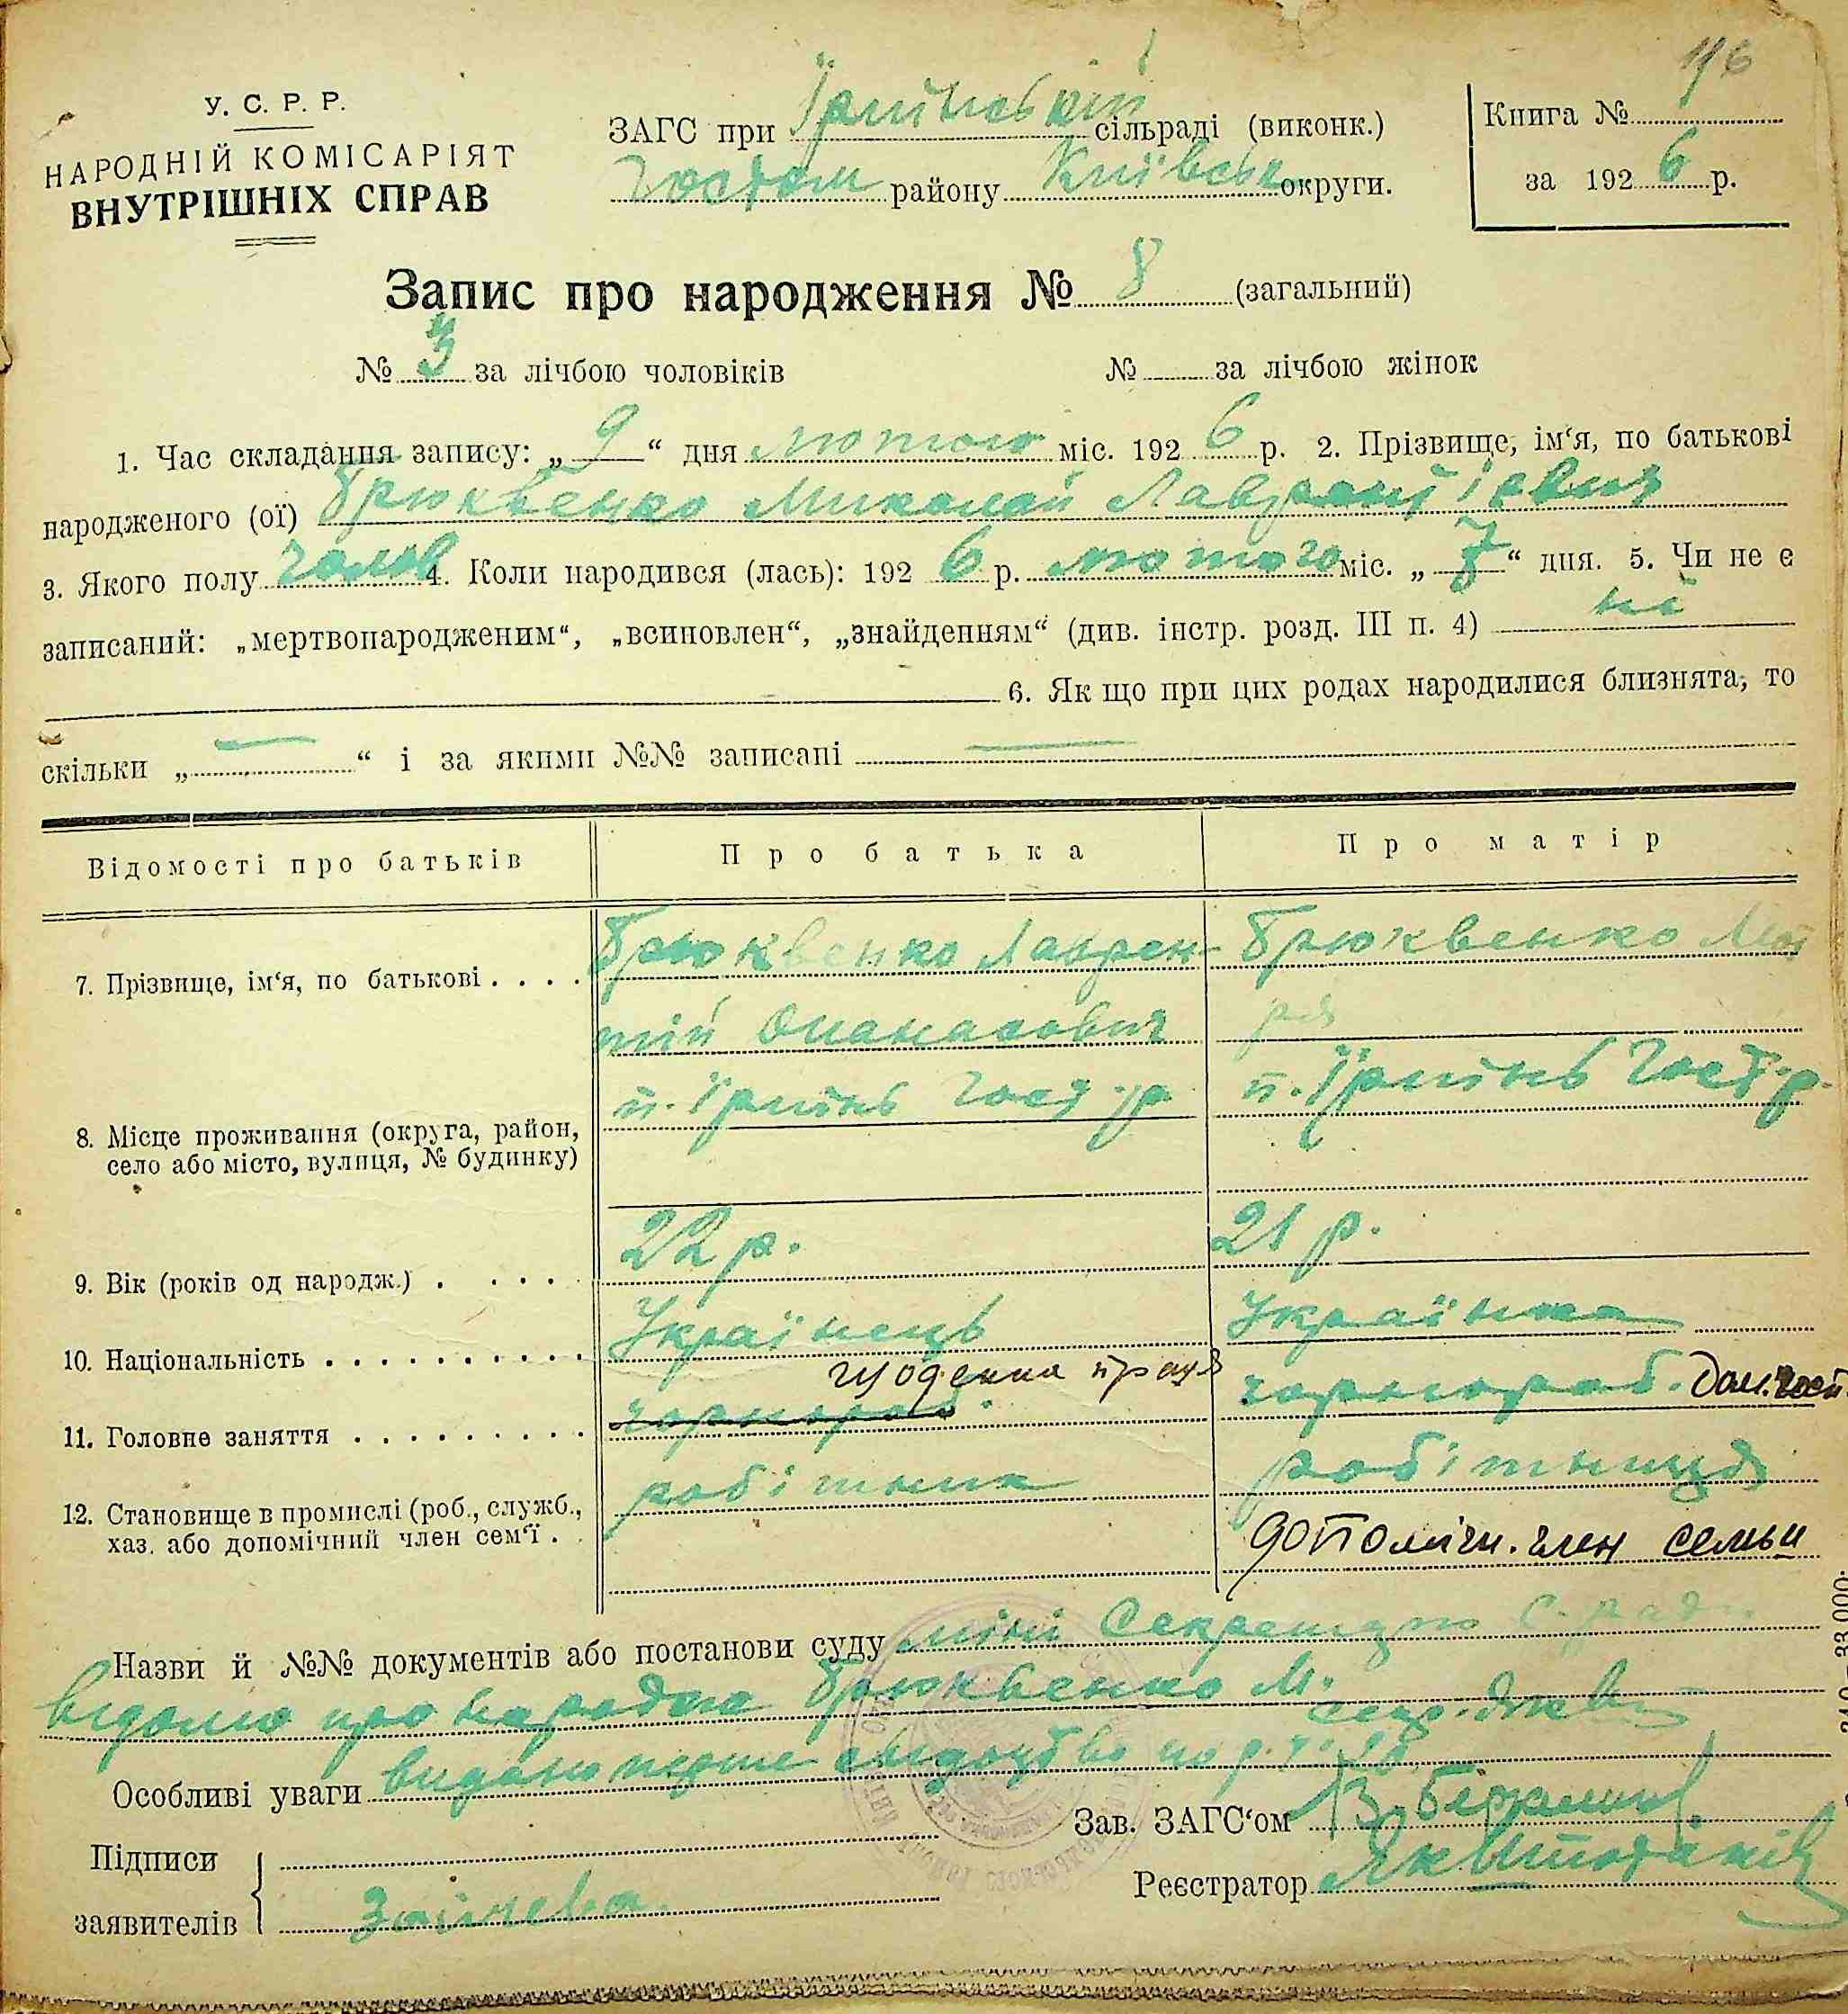 196
У. С. Р. Р.
НАРОДНІЙ КОМІСАРІЯТ
ВНУТРІШНІХ СПРАВ
ЗАГС при Ірпінській сільраді (виконк.)
Гостом району Київськ округи.
Книга №
за 1926 р.
Запис про народження № 8 (загальний)
№ 3 за лічбою чоловіків № за лічбою жінок
1. Час складання запису: „9“ дня лютого міс. 1926 р. 2. Прізвище, ім‘я, по батькові
народженого (ої) Брюквенко Миколай Лаврентієвич
3. Якого полу чолов 4. Коли народився (лась): 1926 р. лютого міс. „7“ дня. 5. Чи не є
записаний: „мертвонародженим“, „всиновлен“, „знайденням“ (див. інстр. розд. III п. 4) ні
6. Як що при цих родах народилися близнята, то
скільки „ — “ і за якими №№ записані —
Відомості про батьків Про батька Про матір
7. Прізвище, ім‘я, по батькові . . . . Брюквенко Лаврен- Брюквенко Ма
тій Опанасович рія
8. Місце проживання (округа, район, село або місто, вулиця, № будинку) п. Ірпінь Гост. р п. Ірпінь Гост. р.
9. Вік (років од народж.) . . . . 22 р. 21 р.
10. Національність . . . . . . . . . . Українець Українка
щоденна праця
11. Головне заняття . . . . . . . . . чорнороб. чорнороб. дом. госп.
12. Становище в промислі (роб., служб., хаз. або допомічний член сем‘ї . . робітник робітниця
допомічн. член семьи
Назви й №№ документів або постанови суду мені Секретарю С. ради
відомо про народж Брюквенко М.
Особливі уваги видано перше свідоцтво
Зав. ЗАГС‘ом
Підписи
заявителів
Реєстратор